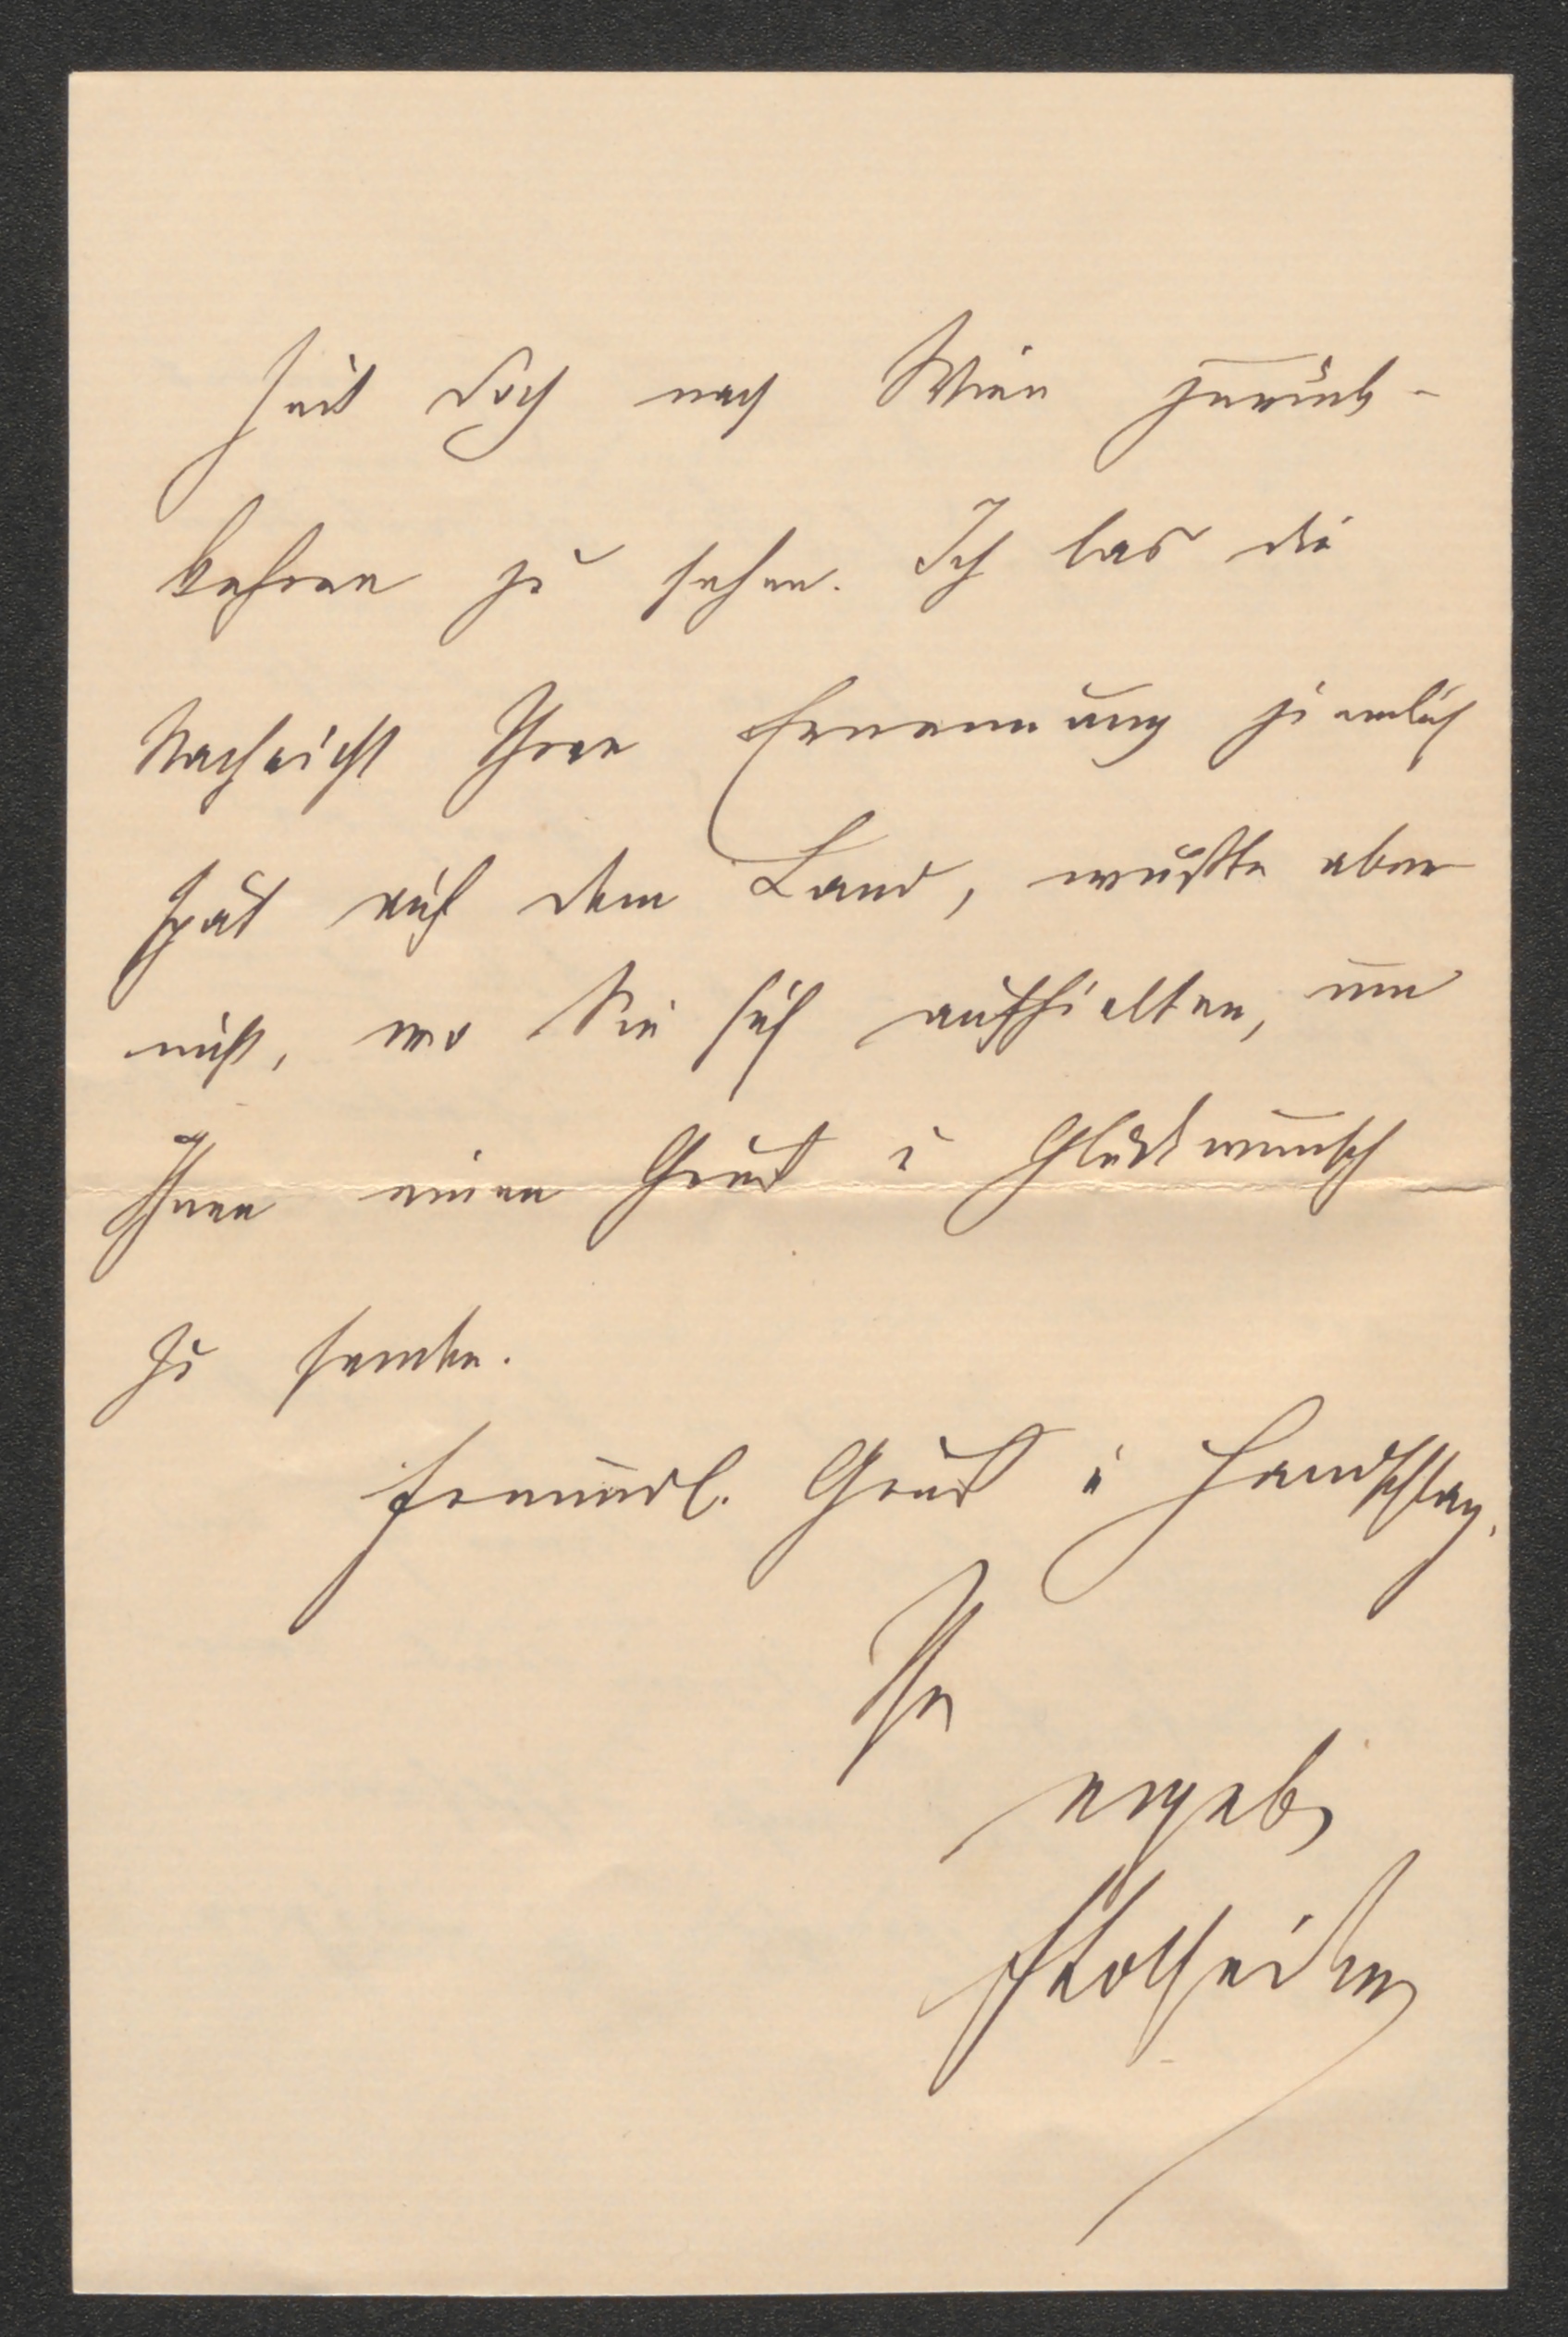 Zeit doch nach Wien zurück-
kehren zu sehen. Ich las die
Nachricht Ihrer Ernennung ziemlich
spät auf dem Land, wußte aber
nicht, wo Sie sich aufhielten, um
Ihnen einen Gruß u Glückwunsch
zu senden.
Freundl. Gruß u Handschlag.
Ihr
ergeb